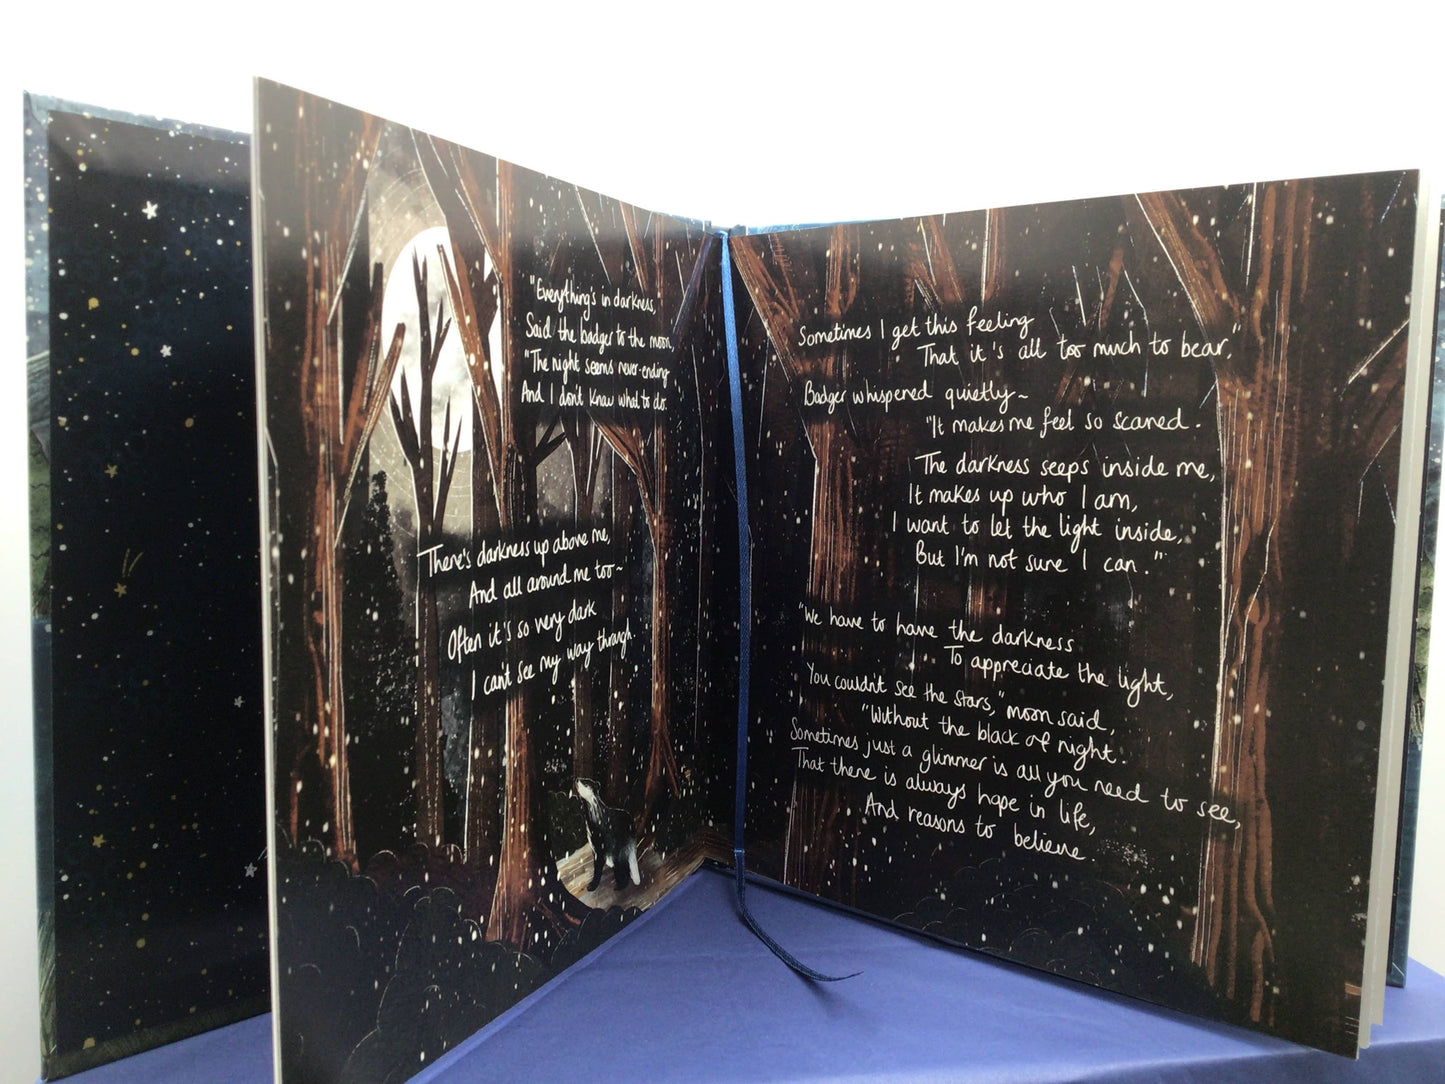 "Everything's in darkness,"
Said the badger to the moon,
"The night seems never-ending
And I don't know what to do.
There's darkness up above me,
And all around me too~
Often it's so very dark
I can't see my way through.
Sometimes I get this feeling
That it's all too much to bear,"
Badger whispered quietly~
"It makes me feel so scared.
The darkness seeps inside me,
It makes up who I am,
I want to let the light inside,
But I'm not sure I can."
"We have to have the darkness
To appreciate the light,
You couldn't see the stars," moon said,
"Without the black of night.
Sometimes just a glimmer is all you need to see,
That there is always hope in life,
And reasons to believe.